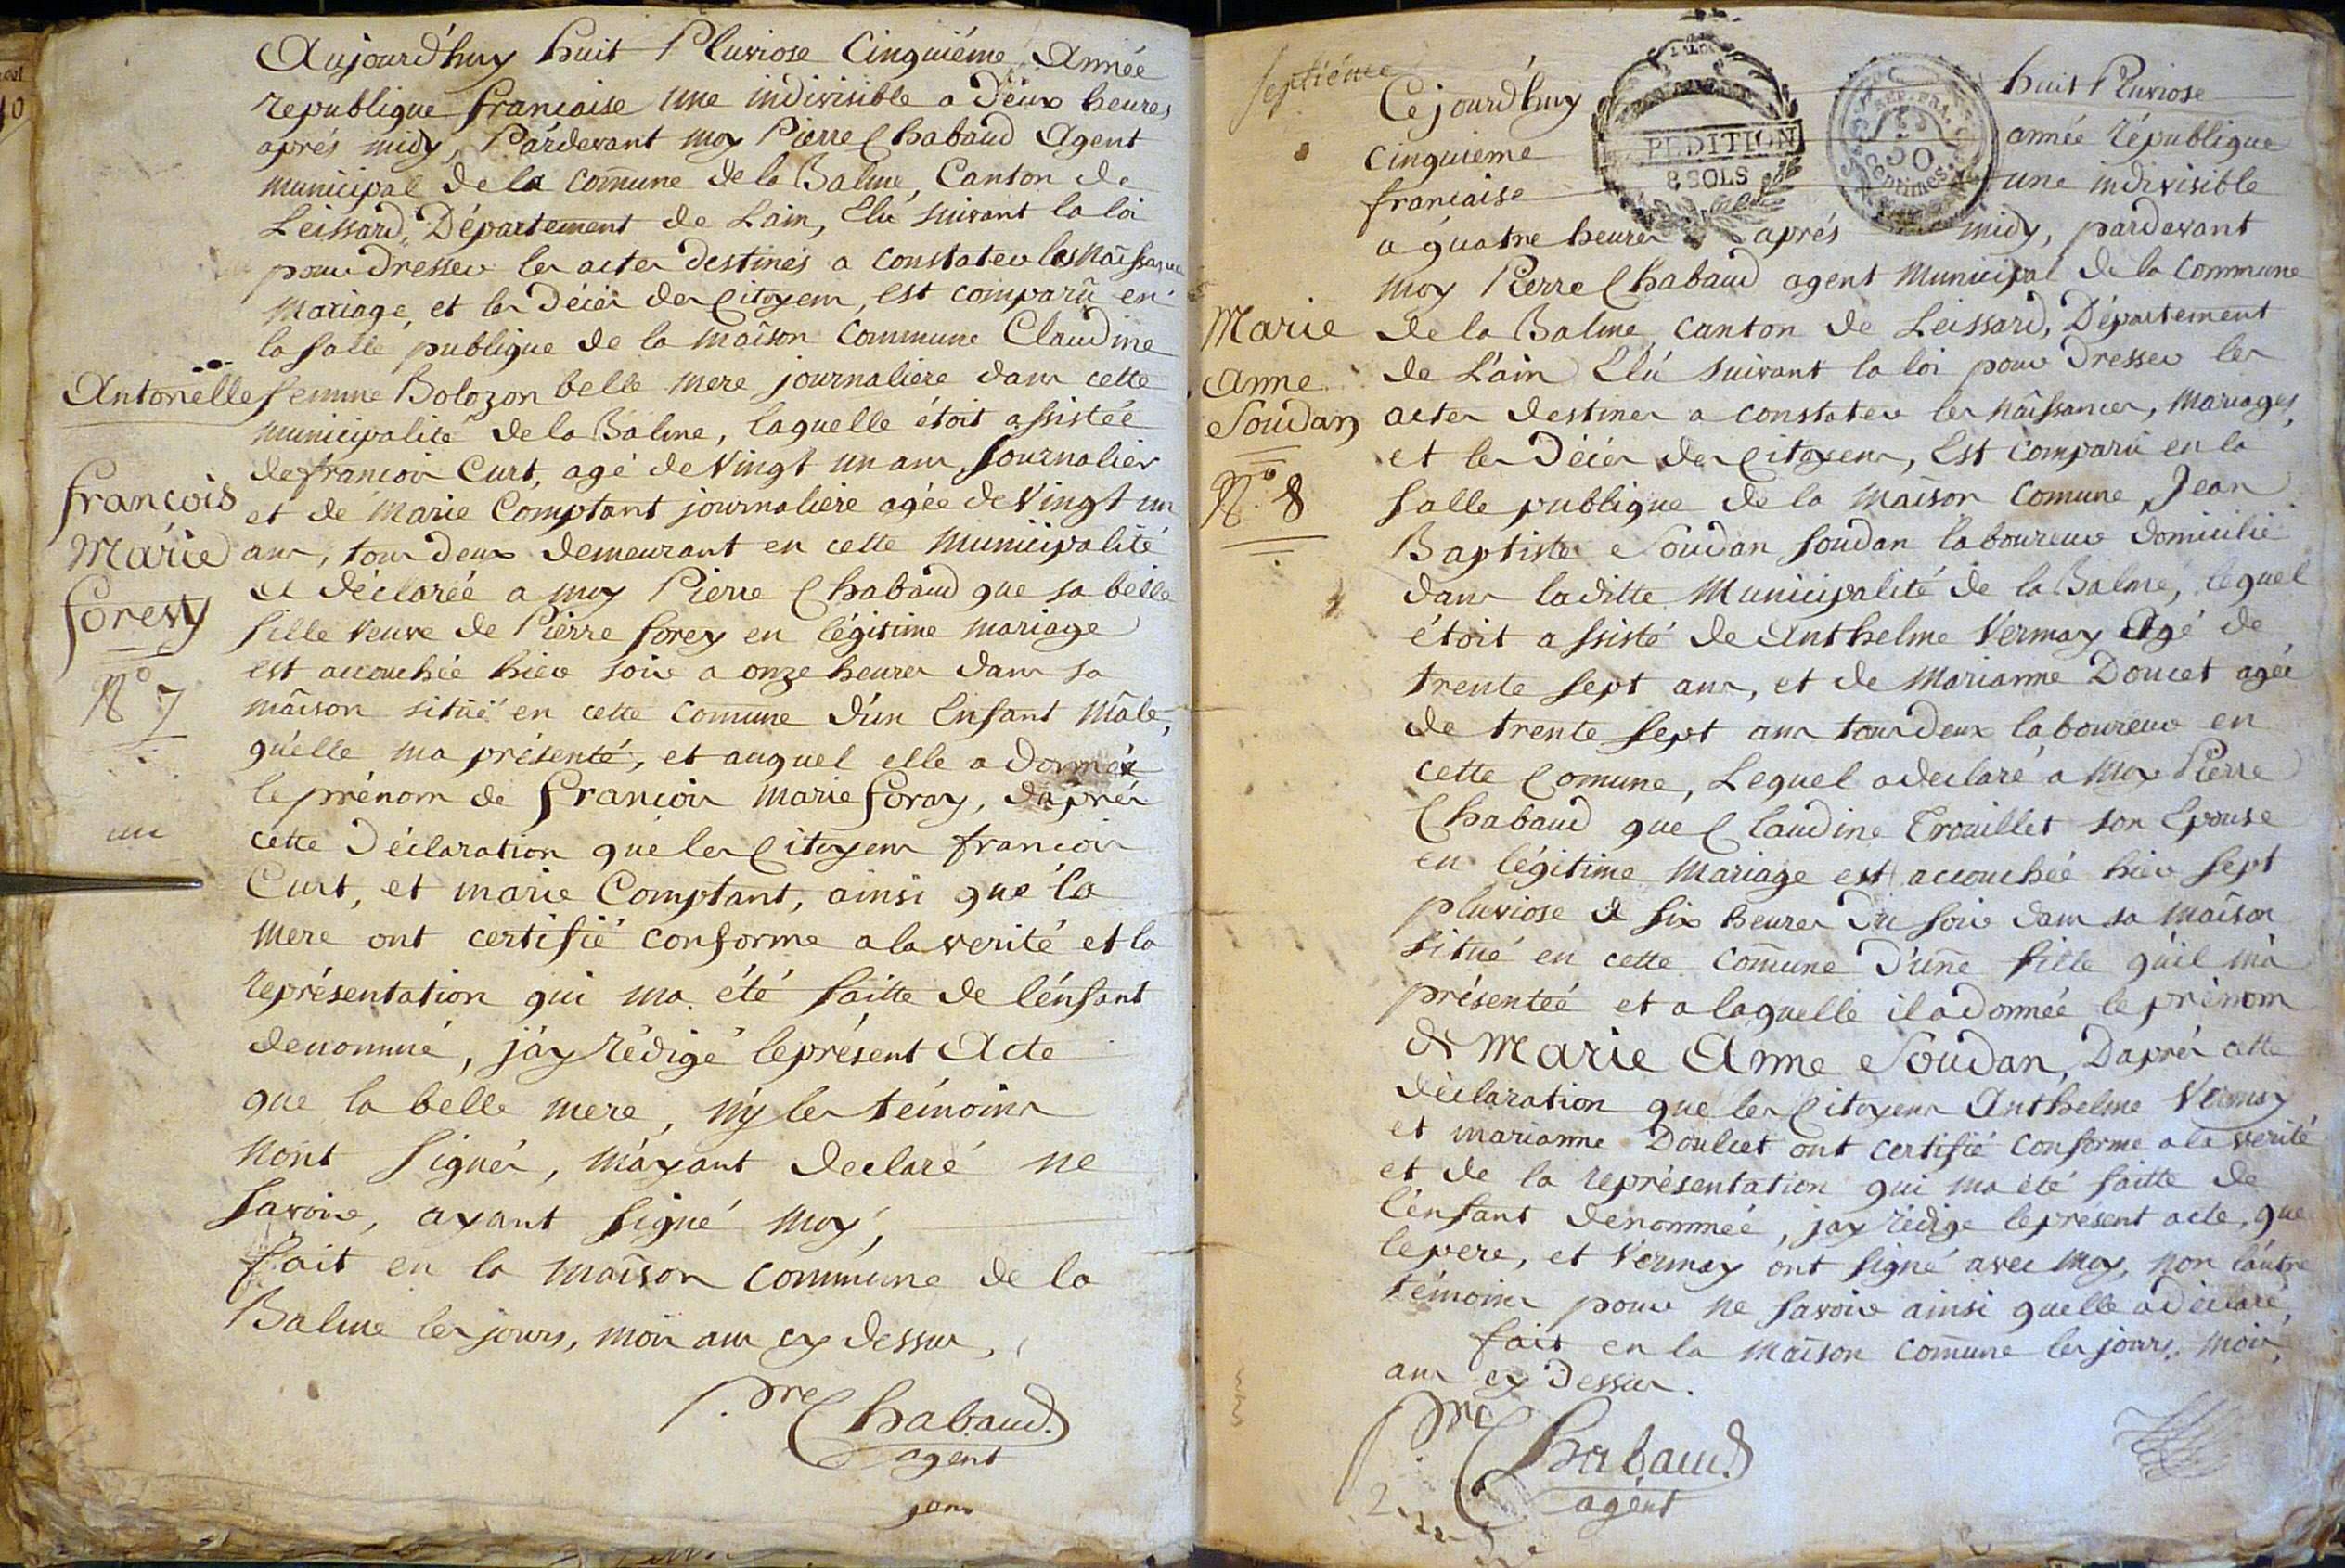 Aujourd'huy huit Pluviose Cinquiéme Année
republique francaise une indivisible a deux heures
aprés midy, Pardevant moy Pierre Chabaud Agent
municipal de la comune de la Balme, Canton de
Leissard, Département de Lain, Elu suivant la loi
pour dresser les actes destinés a constater les naissances
mariage, et les décés des Citoyens, est comparu en
la salle publique de la maison Commune Claudine
Antonelle femme Bolozon belle mere journaliere dans cette
municipalité de la Balme, laquelle étoit assistée
de francois Curt, agé de Vingt un ans, Journalier
et de Marie Comptant journaliere agée de Vingt un
ans, tous deux demeurant en cette Municipalité
a déclarée a moy Pierre Chabaud que sa belle
fille veuve de Pierre forey en légitime mariage
est accouchée hier soir a onze heures dans sa
maison situé en cette comune d'un Enfant Mâle,
qu'elle ma présenté, et auquel elle a donné
le prénom de francois marie foray, daprés
cette Déclaration que les Citoyens francois
Curt, et marie Comptant, ainsi que la
mere ont certifié conforme a la verité et la
représentation qui ma été faitte de l'enfant
denommé, j'ay rédigé le présent Acte
que la belle mere, ny les témoins
nont signés, m'ayant declaré ne
savoir, ayant signé moy,
fait en la maison commune de la
Balme les jours, mois ans cy dessus,
Pre Chabaud
agent
francois
Marie
forey
No 7
un
septiéme
Cejourd'huy huit Pluviose
cinquieme année république
francaise une indivisible
a quatre heures aprés midy, pardevant
moy Pierre Chabaud agent Municipal de la Commune
de la Balme, canton de Leissard, Département
de L'ain Elu suivant la loi pour dresser les
actes destines a constater les naissances, mariages,
et les Décés des Citoyens, Est comparu en la
salle publique de la maison comune Jean
Baptiste Soudan soudan laboureur domicilié
dans laditte Municipalité de la Balme, lequel
étoit assisté de Anthelme Vermay Agé de
trente sept ans, et de Marianne Doucet agée
de trente sept ans tous deux laboureur en
cette Comune, Lequel a declaré a moy Pierre
Chabaud que Claudine Trouillet son Epouse
en légitime mariage est accouchée hier sept
pluviose a six heures du soir dans sa maison
situé en cette comune d'une fille qu'il m'a
présentée et a laquelle il a donnée le prénom
de Marie Anne Soudan, Daprés cette
déclaration que les Citoyens Anthelme Vermay
et marianne Doulcet ont certifié conforme a la verité
et de la représentation qui ma été faitte de
l'enfant denommée, jay rédigé le present acte, que
le pere, et Vermay ont signé avec moy, non l'autre
témoins pour ne savoir ainsi quelle a déclaré,
fait en la maison comune les jours, mois,
ans cy dessus.
Pre Chabaud
agent
Marie
Anne
Soudan
No 8
EXPEDITION
8 SOLS
REP. FRA.
50
Centimes